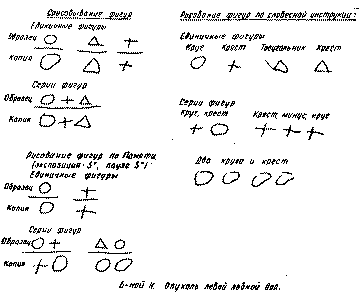 Срисовывание фигур
Единичные фигуры
Образец
Копия
Серии фигур
Образец
Копия
Рисование фигур по памяти
(экспозиция - 5", пауза 5")
Единичные фигуры
Образец
Копия
Серии фигур
Образец
Копия
Рисование фигур по словесной инструкции:
Единичные фигуры
Круг Крест Треугольник Крест
Серии фигур
Круг, крест Крест, минус, круг
Два круга и крест
Б-ной К. Опухоль левой лобной дол.